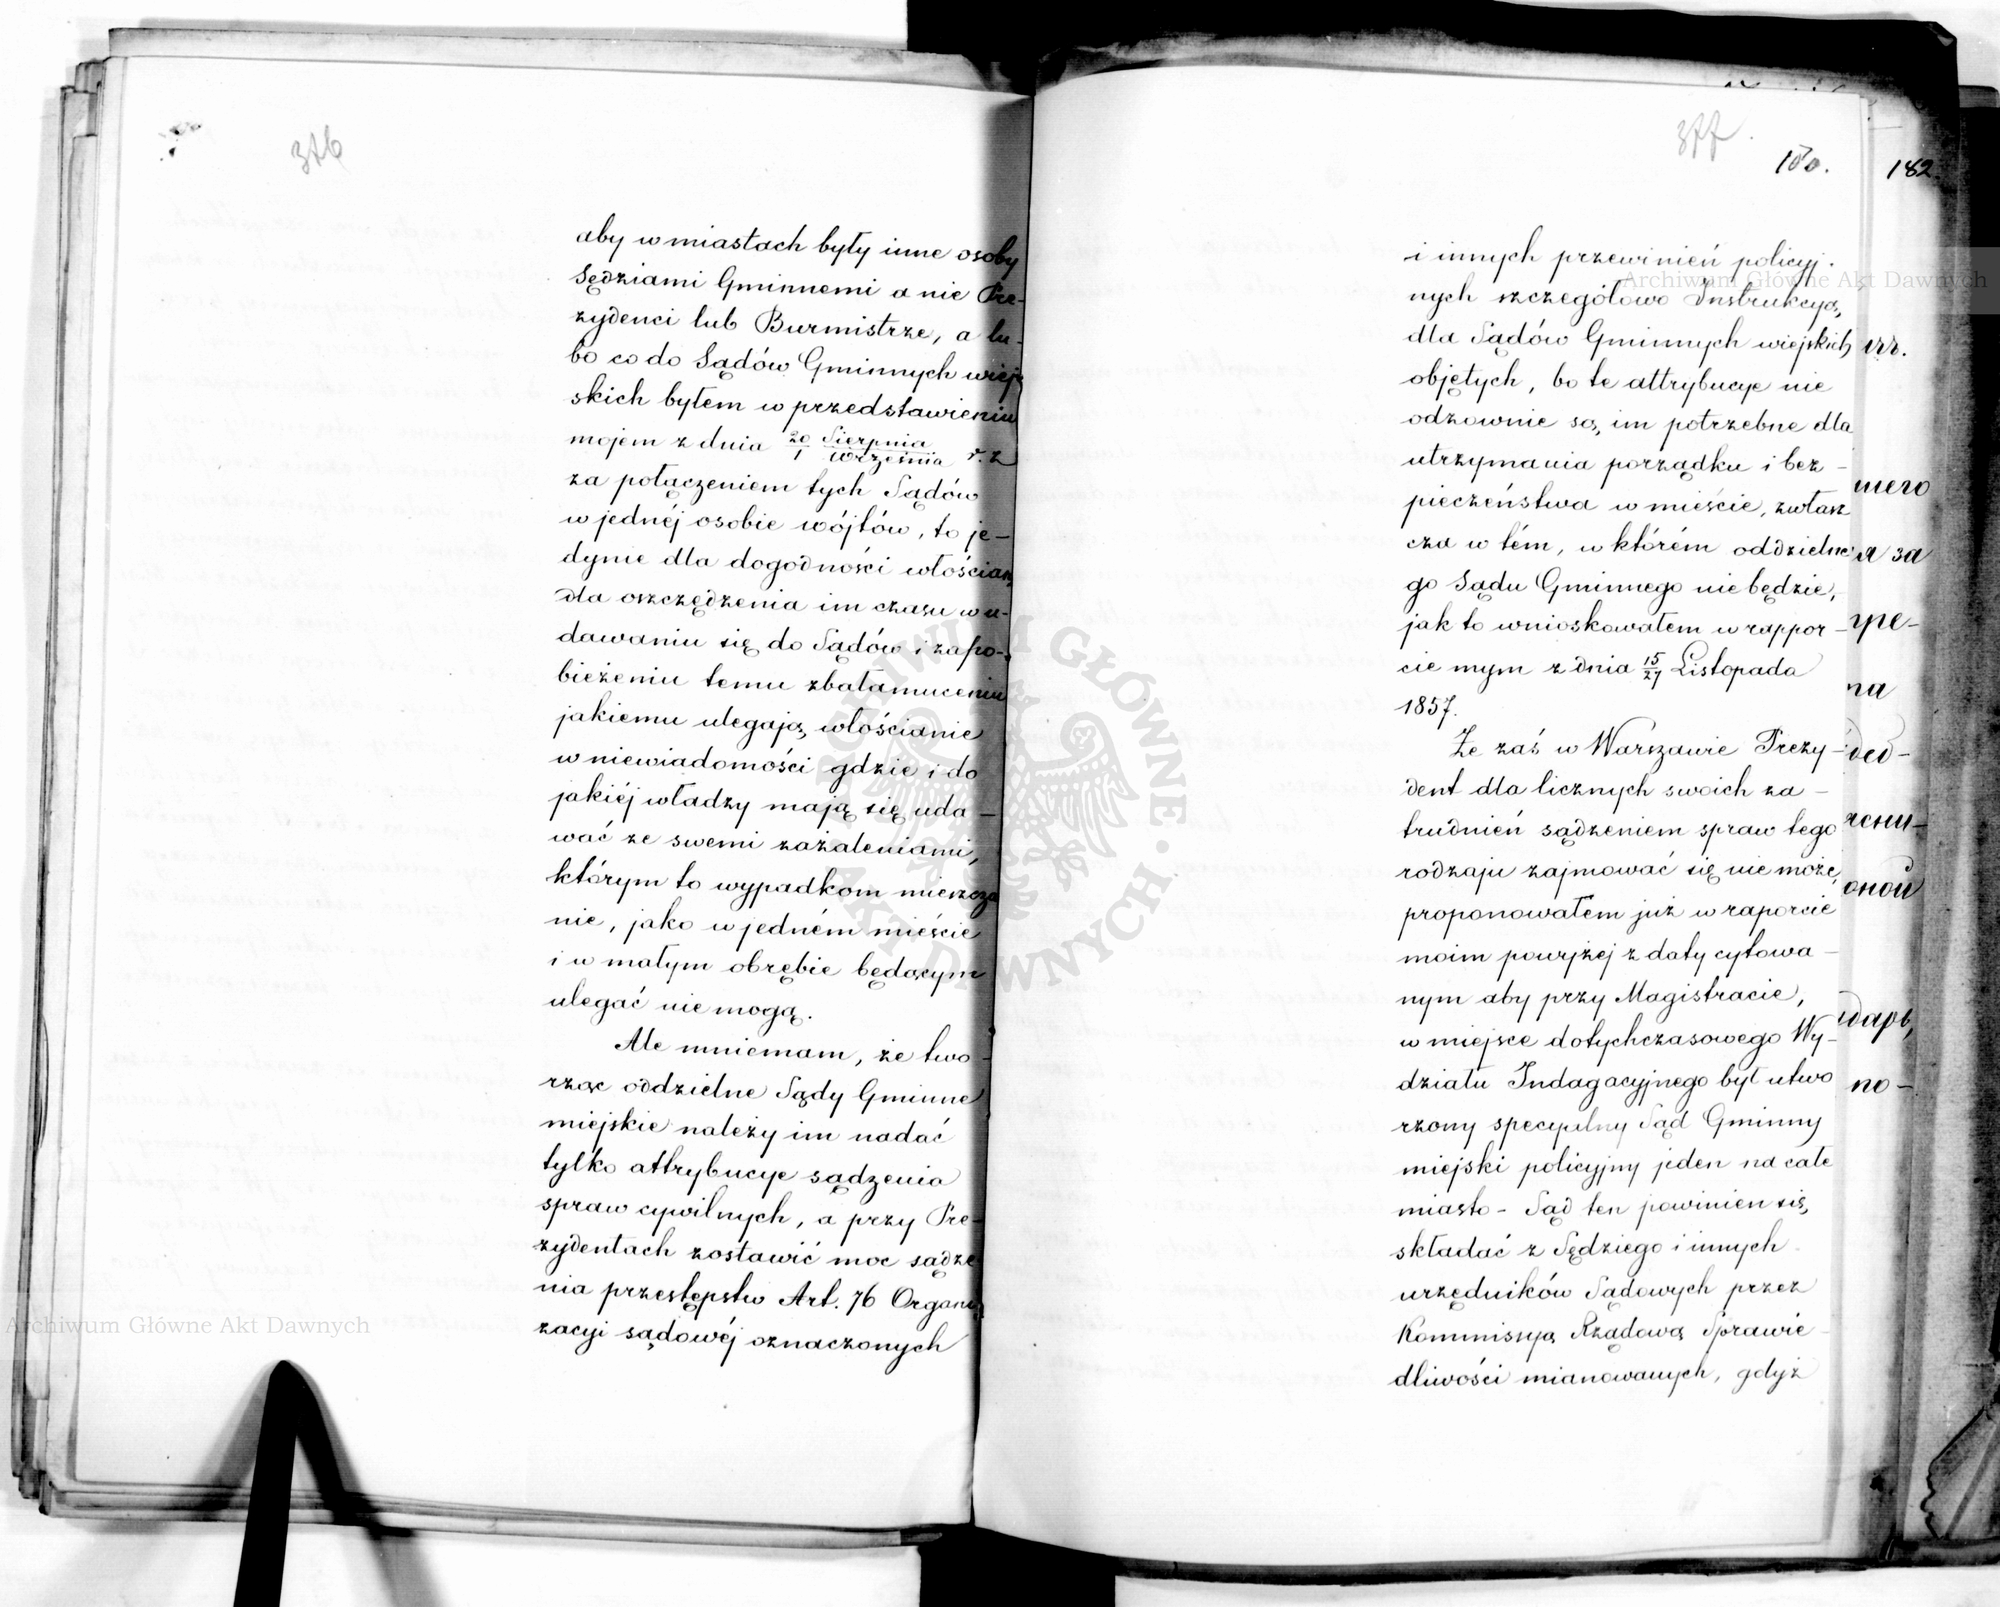 376
aby w miastach były inne osoby
Sędziami Gminnemi a nie Pre-
zydenci lub Burmistrze, a lu-
bo co do Sądów Gminnych wiej-
skich byłem w przedstawieniu
mojem z dnia 20/1 Sierpnia/Września r. z
za połączeniem tych Sądów
w jednéj osobie wójtów, to je-
dynie dla dogodności włościan
dla oszczędzenia im czasu w u-
dawaniu się do Sądów i zapo-
bieżeniu temu zbałamuceniu
jakiemu ulegają włościanie
w niewiadomości gdzie i do
jakiéj władzy mają się uda-
wać ze swemi zażaleniami,
którym to wypadkom mieszcza
nie, jako w jedném mieście
i w małym obrębie będącym
ulegać nie mogą.
Ale mniemam, że two-
rząc oddzielne Sądy Gminne
miejskie należy im nadać
tylko attrybucye sądzenia
spraw cywilnych, a przy Pre-
zydentach zostawić moc sądze
nia przestępstw Art. 76 Organi-
zacyi sądowéj oznaczonych
377
180.
i innych przewinień policyj-
nych szczegółowo Instrukcyą
dla Sądów Gminnych wiejskich
objętych, bo te attrybucye nie
odzownie są im potrzebne dla
utrzymania porządku i bez-
pieczeństwa w mieście, zwłasz
cza w tém, w którém oddzielne
go Sądu Gminnego nie będzie,
jak to wnioskowałem w rappor-
cie mym z dnia 15/27 Listopada
1857.
Że zaś w Warszawie Prezy-
dent dla licznych swoich za-
trudnień sądzeniem spraw tego
rodzaju zajmować się nie może,
proponowałem już w raporcie
moim powyżej z daty cytowa-
nym aby przy Magistracie,
w miejsce dotychczasowego Wy-
działu Indagacyjnego był utwo
rzony specyalny Sąd Gminny
miejski policyjny jeden na całe
miasto - Sąd ten powinien się
składać z Sędziego i innych
urzędników Sądowych przez
Kommisyą Rządową Sprawie-
dliwości mianowanych, gdyż
182
я за
гре-
на
дед-
оной
дарь,
по-
Archiwum Główne Akt Dawnych
Archiwum Główne Akt Dawnych
ARCHIWUM GŁÓWNE AKT DAWNYCH